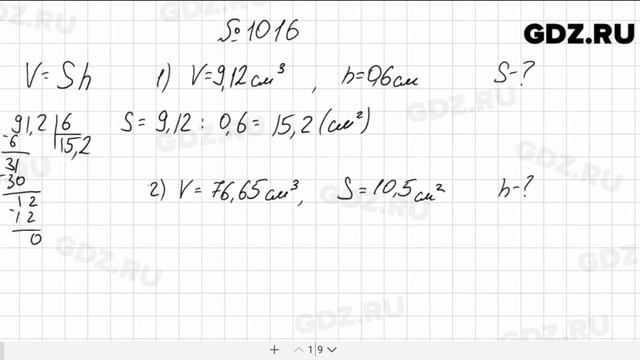 № 1016
GDZ.RU
V = Sh 1) V = 9,12 см³, h = 0,6 см S - ?
91,2 | 6 S = 9,12 : 0,6 = 15,2 (см²)
-6 15,2
31
-30
12
-12
0
2) V = 76,65 см³, S = 10,5 см² h - ?
GDZ.RU
GDZ.RU
GDZ.RU
GDZ.RU
GDZ.RU
GDZ.RU
+ 1|9